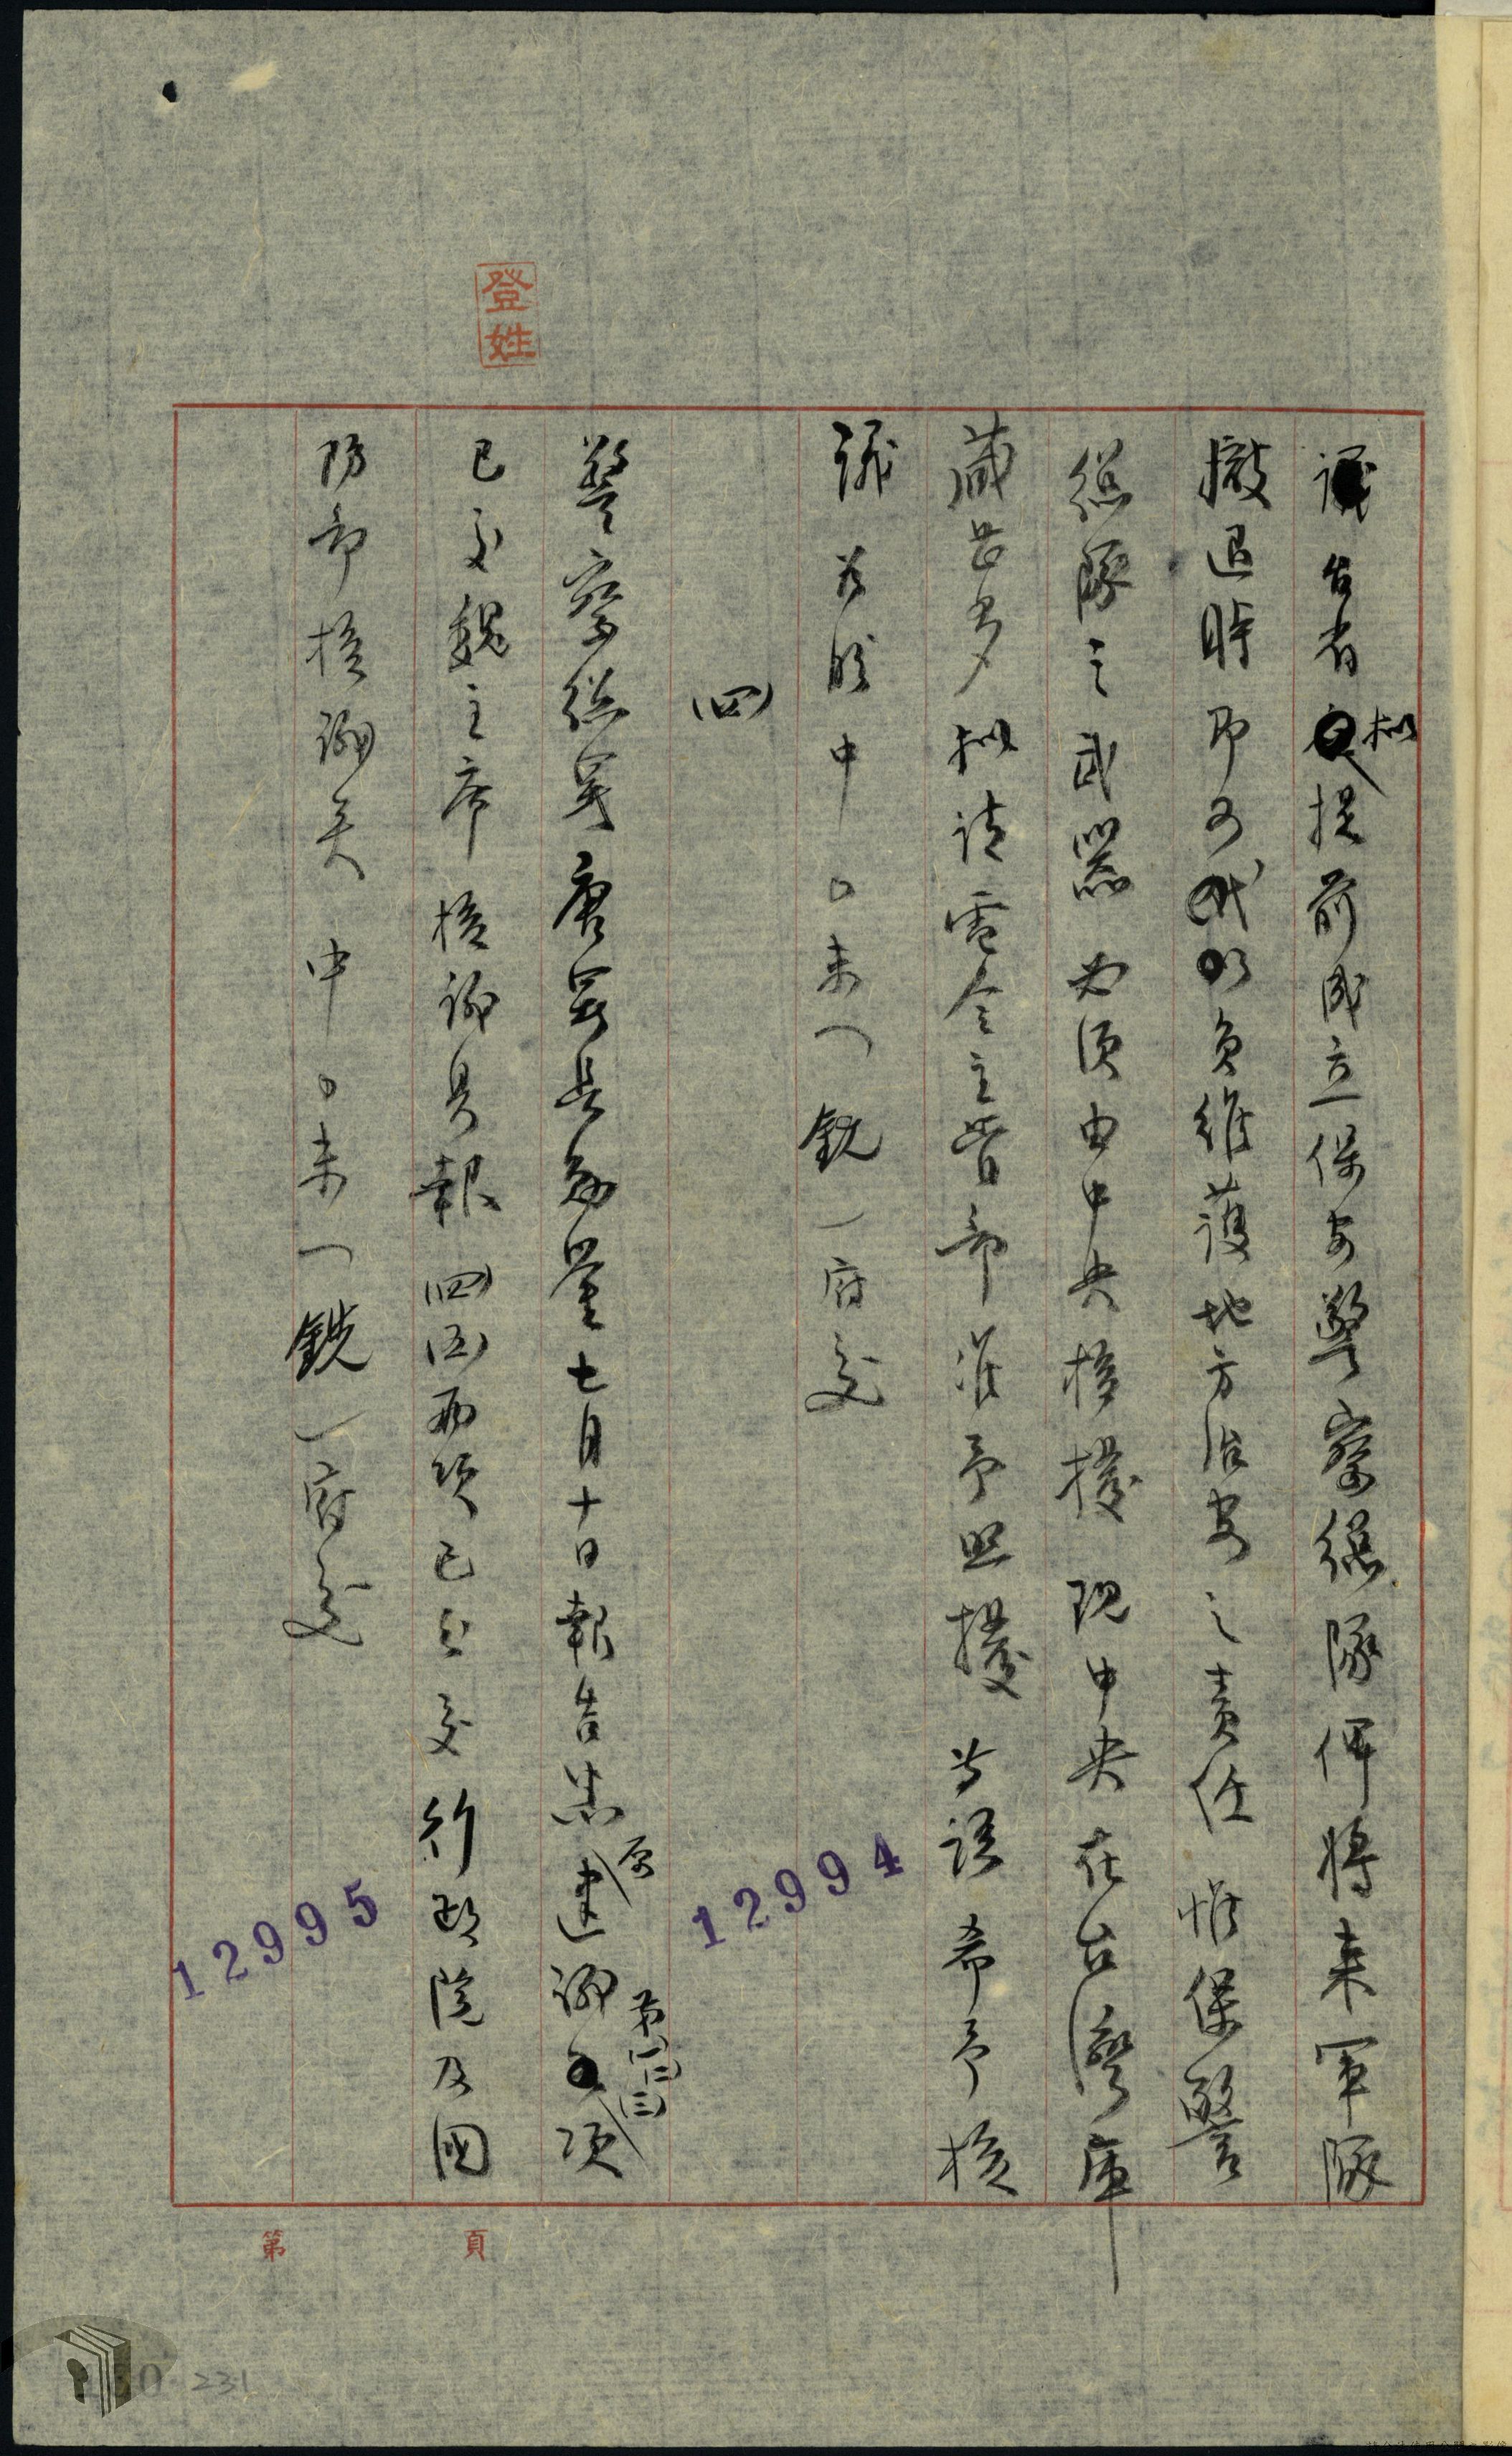 登姓
議台省拟提前成立保安警察總隊俾將来軍隊
撤退時即可代以負維護地方治安之責任惟保警
總隊之武器必須由中央核撥現中央在台灣庫
藏甚多拟請電令主管部准予照撥等語希予核
議為盼中○未一銑一府交
12994
(四)
警察總署唐署長毅呈七月十日報告悉原建議第(一)(二)(三)項
已交魏主席核議具報(四)(五)兩項已分交行政院及國
防部核議矣中○未一銑一府交
12995
第 頁
231